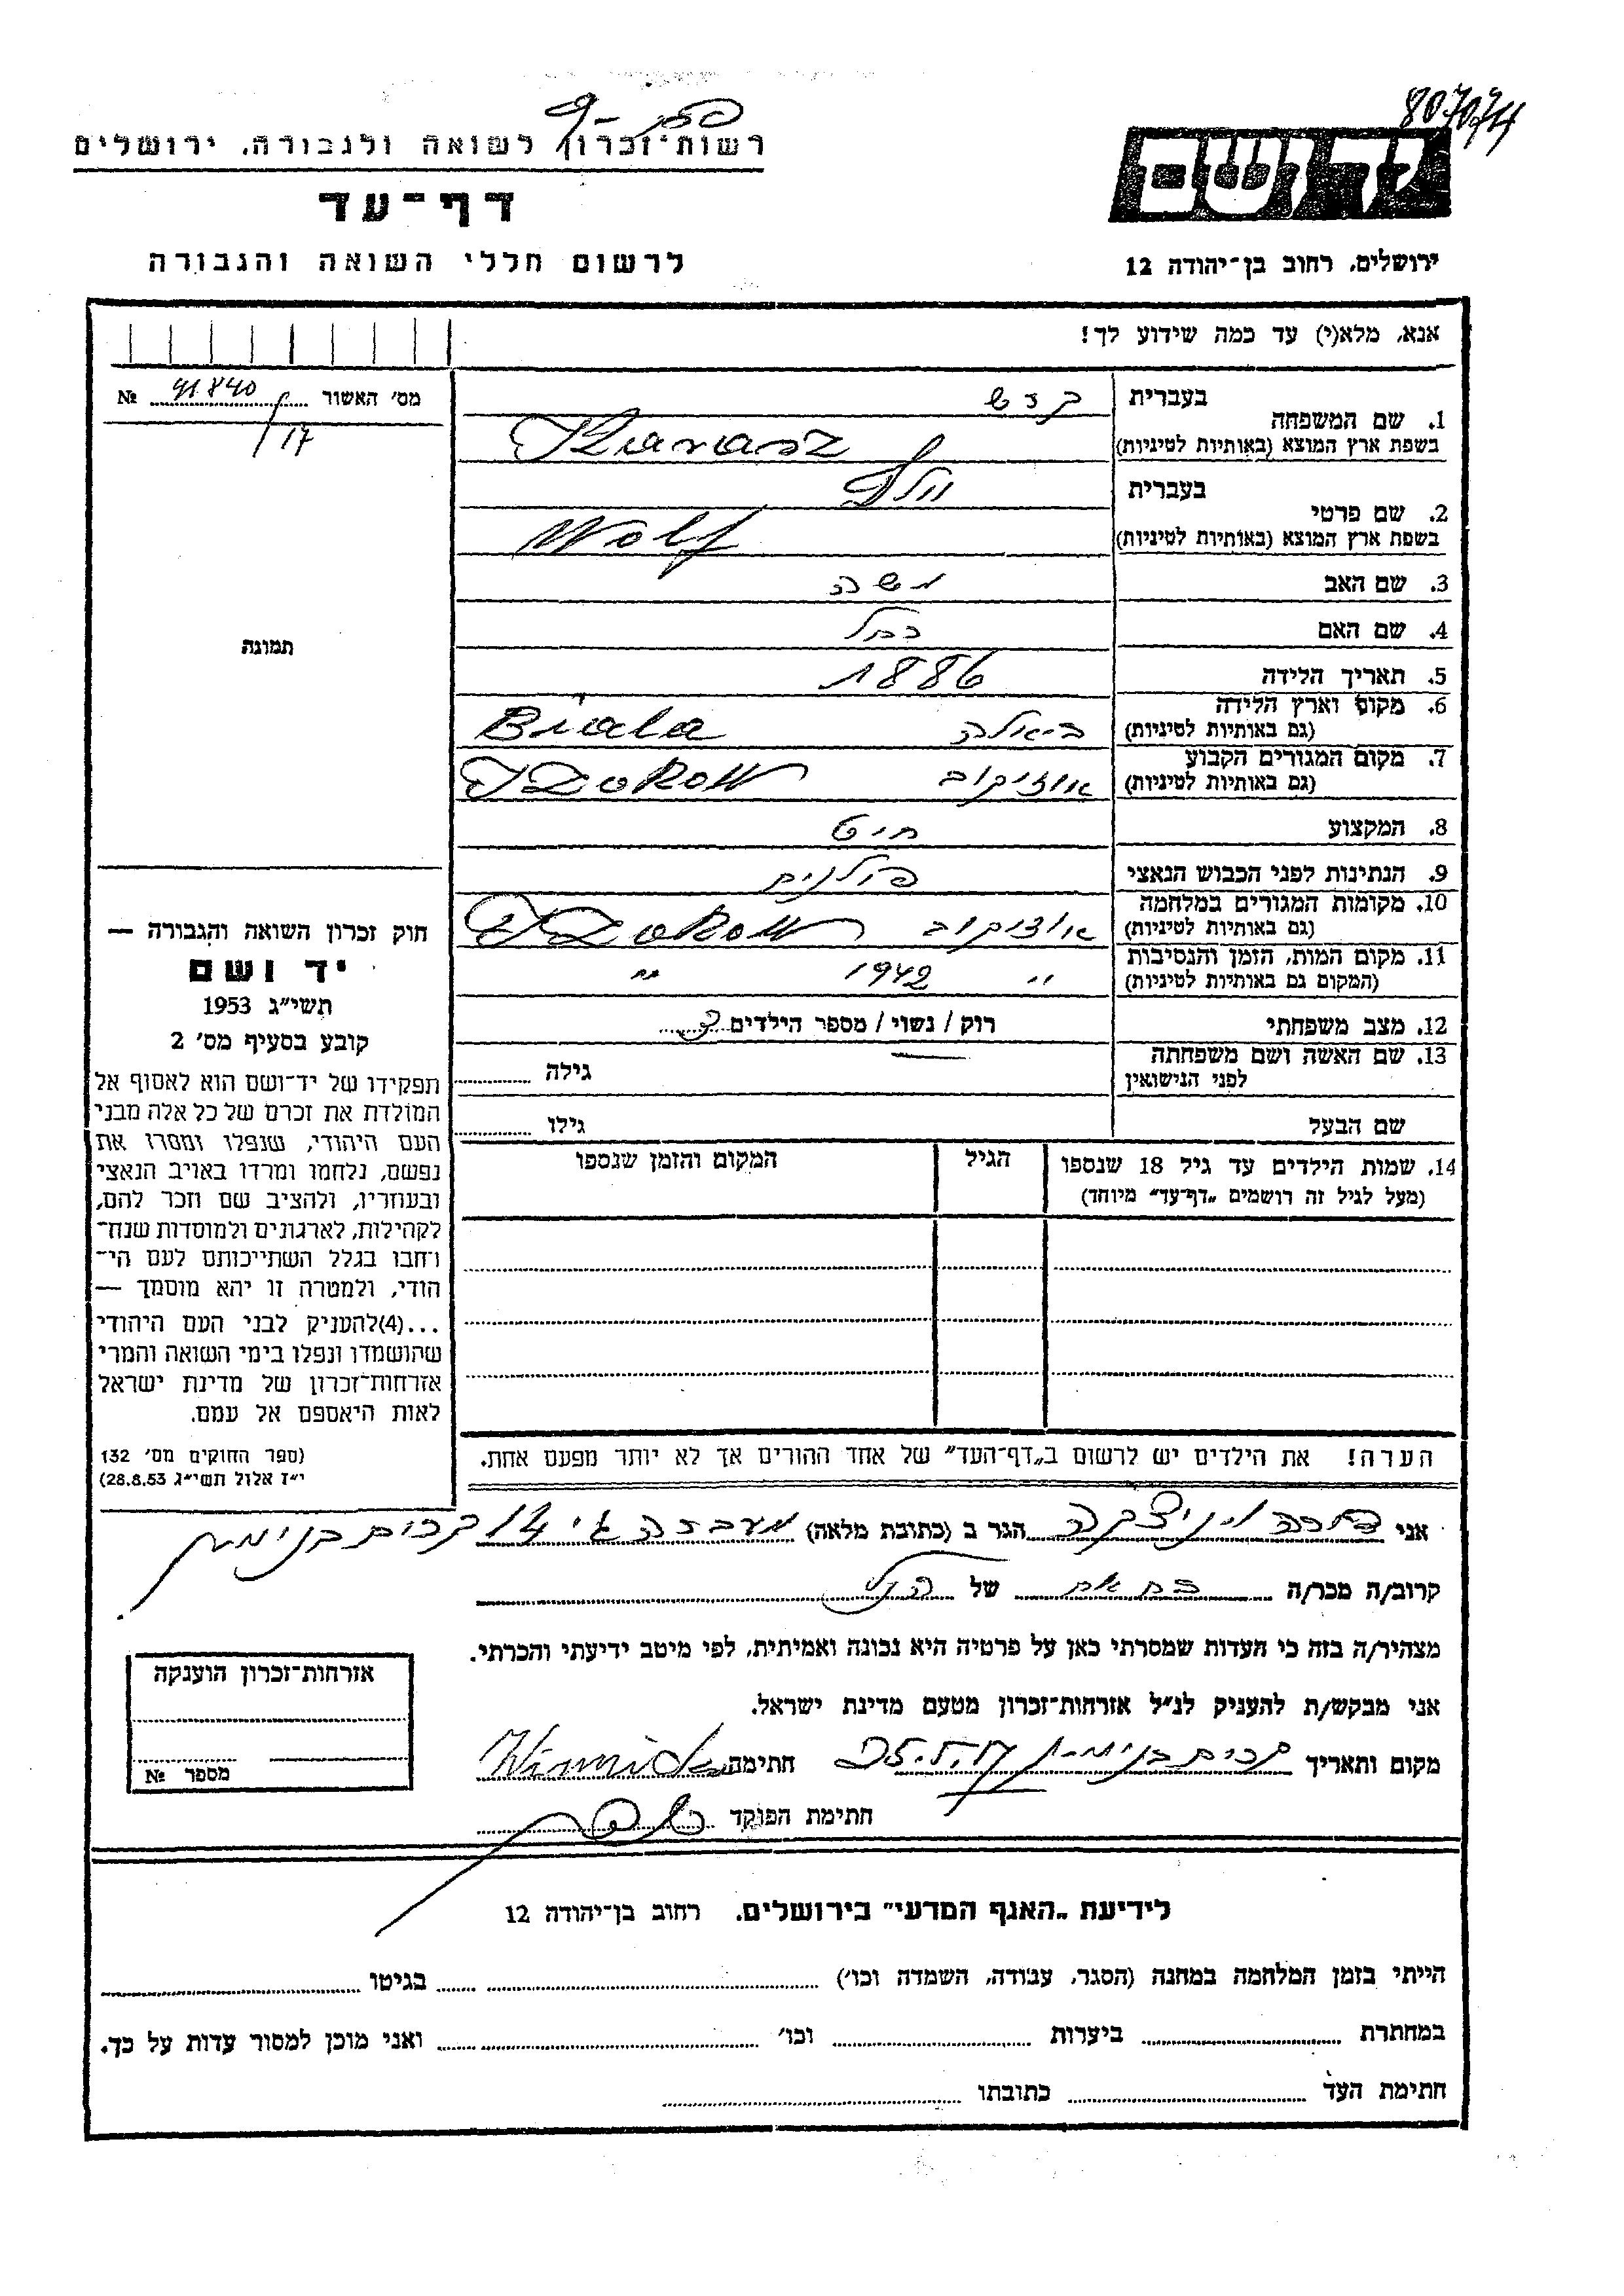 807074
רשות־זכרון לשואה ולגבורה, ירושלים
דף־עד
לרשום חללי השואה והגבורה
ידושם
ירושלים, רחוב בן־יהודה 12
אנא, מלא(י) עד כמה שידוע לך!
מס׳ האשור 91840 №
/17
תמונה
חוק זכרון השואה והגבורה —
יד ושם
תשי״ג 1953
קובע בסעיף מס׳ 2
תפקידו של יד־ושם הוא לאסוף אל
המולדת את זכרם של כל אלה מבני
העם היהודי, שנפלו ומסרו את
נפשם, נלחמו ומרדו באויב הנאצי
ובעוזריו, ולהציב שם וזכר להם,
לקהילות, לארגונים ולמוסדות שנח־
רחבו בגלל השתייכותם לעם הי־
הודי, ולמטרה זו יהא מוסמך —
...(4)להעניק לבני העם היהודי
שהושמדו ונפלו בימי השואה והמרי
אזרחות־זכרון של מדינת ישראל
לאות היאספם אל עמם.
(ספר החוקים מס׳ 132
י״ז אלול תשי״ג 28.8.53)
בעברית
1. שם המשפחה
בשפת ארץ המוצא (באותיות לטיניות) Karasz
בעברית וולף
2. שם פרטי
בשפת ארץ המוצא (באותיות לטיניות) Wolf
3. שם האב משה
4. שם האם
5. תאריך הלידה 1886
6. מקום וארץ הלידה ביאלה Biala
(גם באותיות לטיניות)
7. מקום המגורים הקבוע
(גם באותיות לטיניות)
8. המקצוע חיט
9. הנתינות לפני הכבוש הנאצי
10. מקומות המגורים במלחמה
(גם באותיות לטיניות)
11. מקום המות, הזמן והנסיבות ״ 1942 ״
(המקום גם באותיות לטיניות)
12. מצב משפחתי רוק / נשוי / מספר הילדים
13. שם האשה ושם משפחתה גילה
לפני הנישואין
שם הבעל גילו
14. שמות הילדים עד גיל 18 שנספו הגיל המקום והזמן שנספו
(מעל לגיל זה רושמים „דף־עד״ מיוחד)
הערה! את הילדים יש לרשום ב„דף־העד״ של אחד ההורים אך לא יותר מפעם אחת.
אני הגר ב (כתובת מלאה) מעברה
קרוב/ה מכר/ה של הנ״ל
מצהיר/ה בזה כי העדות שמסרתי כאן על פרטיה היא נכונה ואמיתית, לפי מיטב ידיעתי והכרתי.
אני מבקש/ת להעניק לנ״ל אזרחות־זכרון מטעם מדינת ישראל.
מקום ותאריך חתימה
חתימת הפוקד
אזרחות־זכרון הוענקה
מספר №
לידיעת „האגף המדעי״ בירושלים, רחוב בן־יהודה 12
הייתי בזמן המלחמה במחנה (הסגר, עבודה, השמדה וכו׳) בגיטו
במחתרת ביערות וכו׳ ואני מוכן למסור עדות על כך.
חתימת העד כתובתו